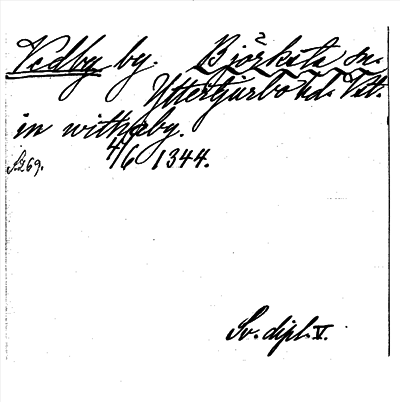 Vedby by. Björksta sn.
Yttertjurbo hd. Vstl.
in withaby.
4/6 1344.
S. 269.
Sv. dipl. V.